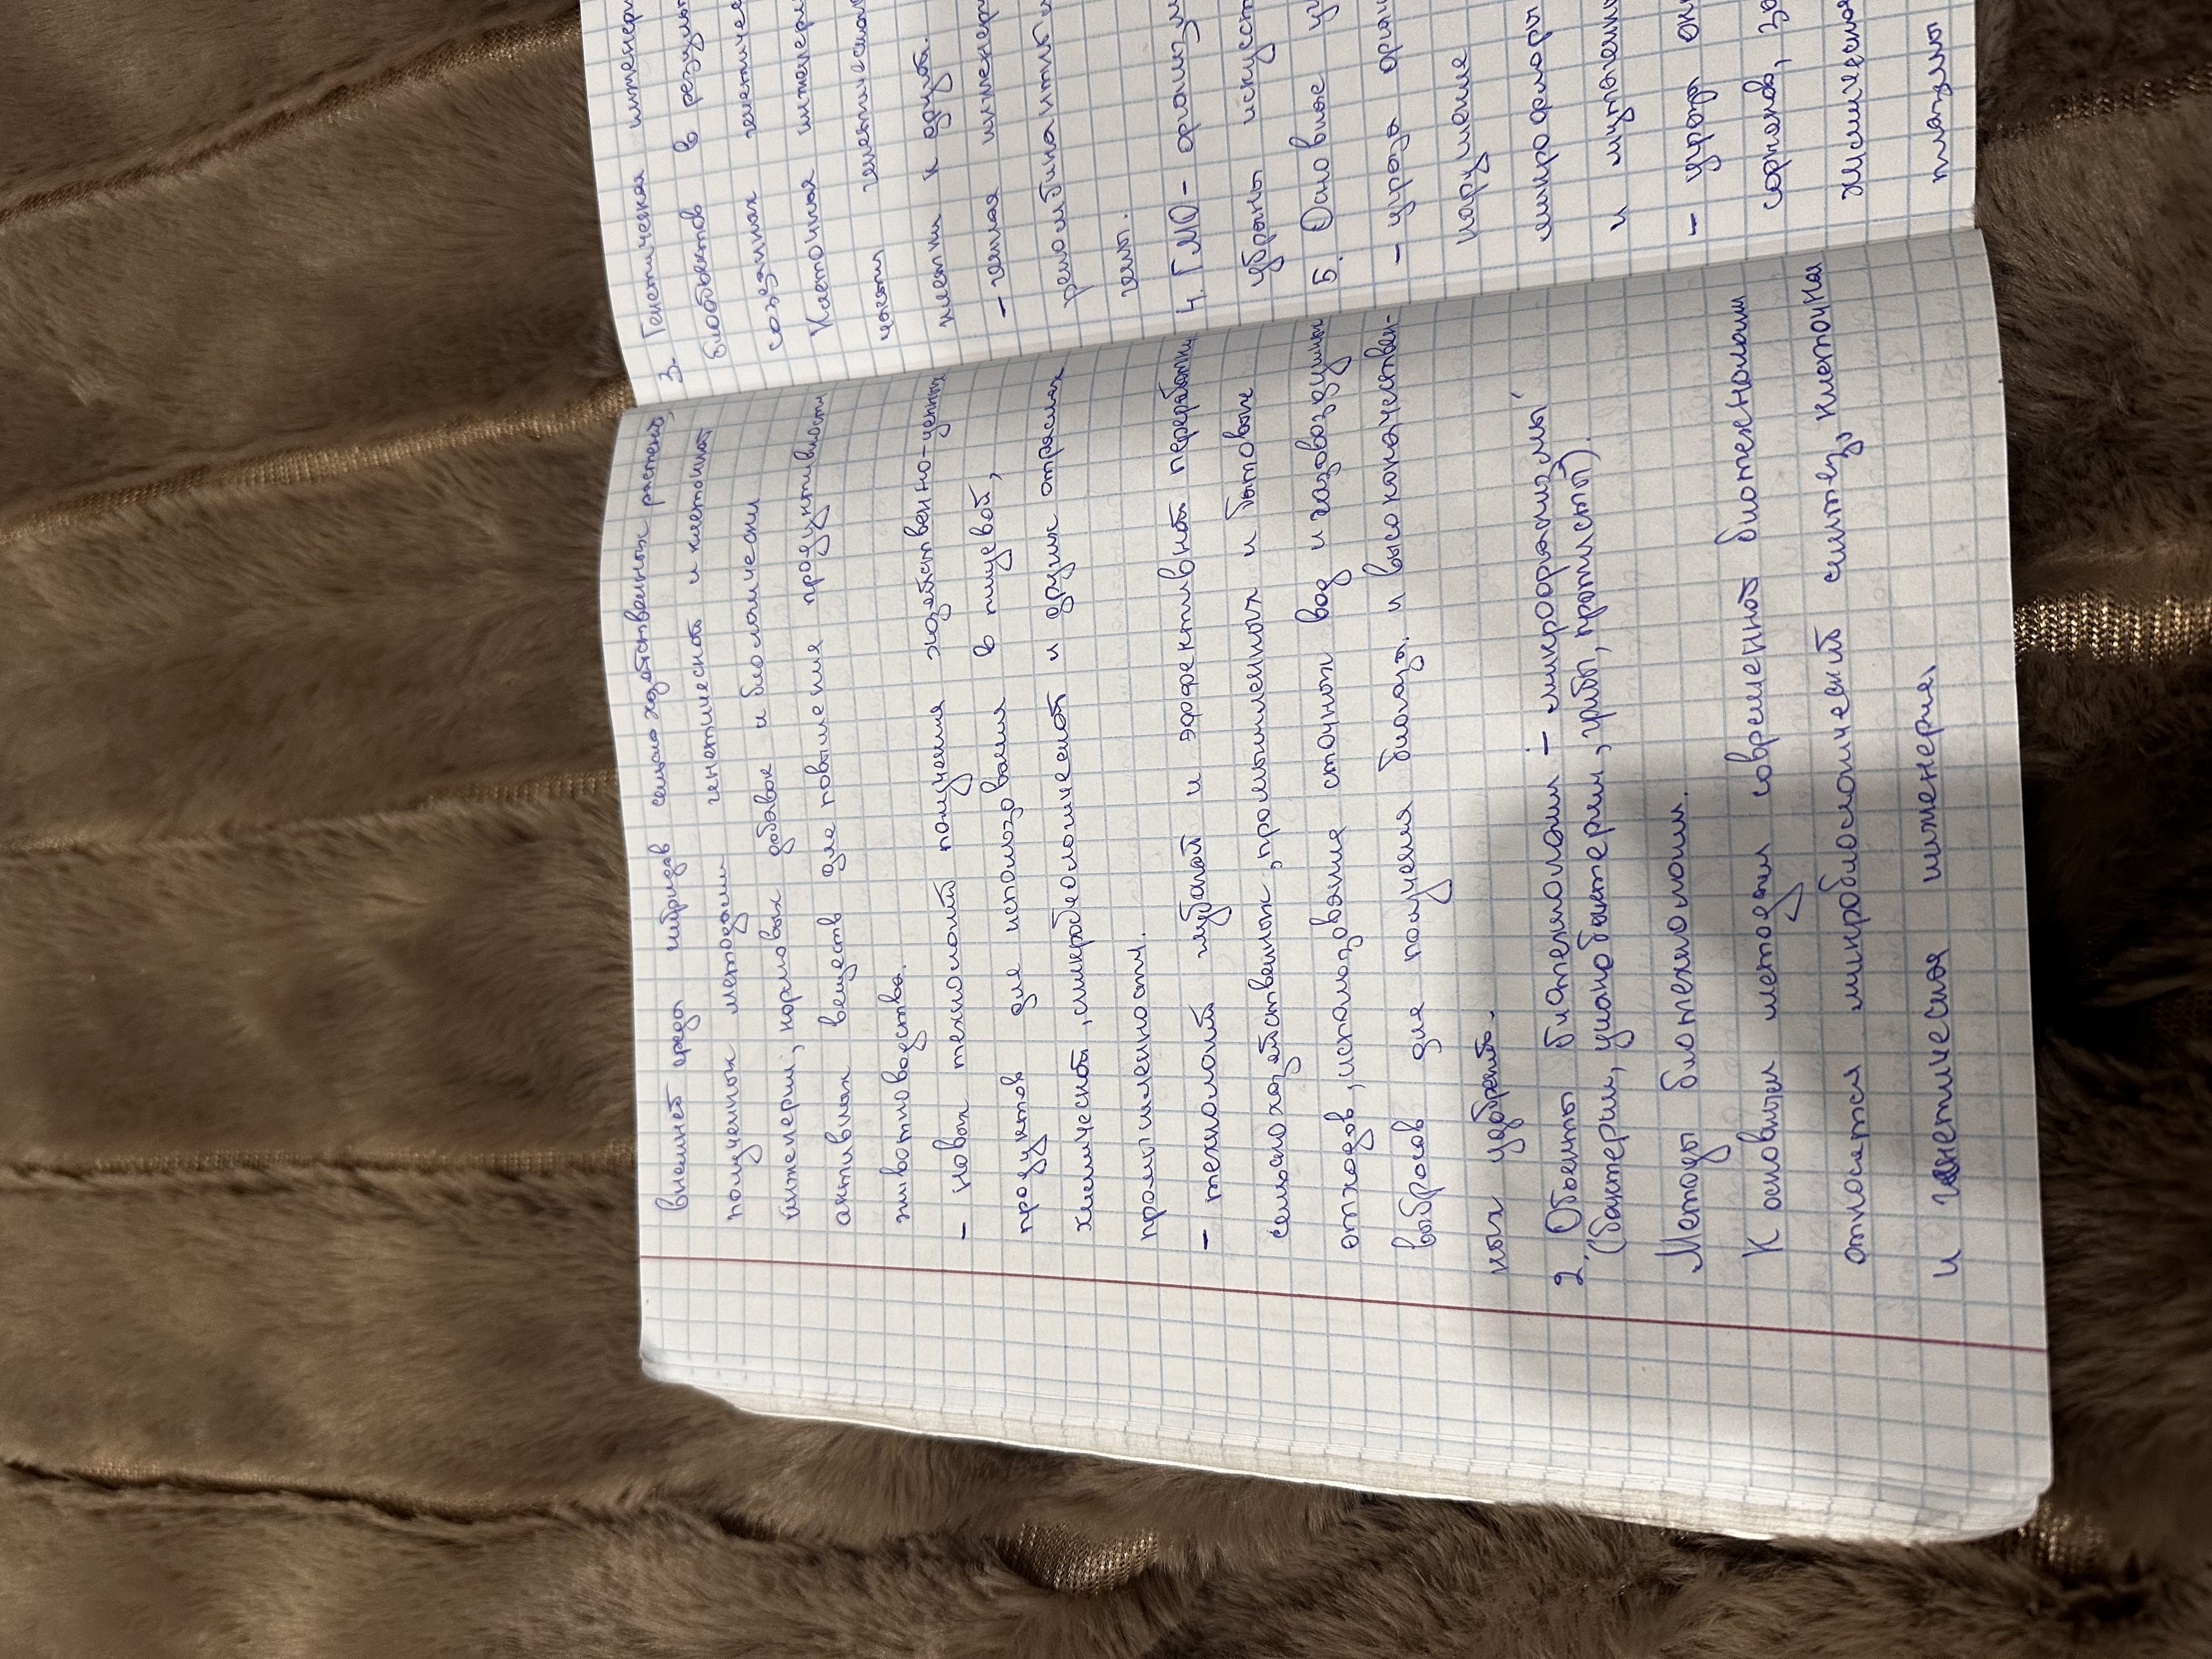 внешней среды гибридов сельскохозяйственных растений,
полученных методами генетической и клеточной
инженерии, кормовых добавок и биологически
активных веществ для повышения продуктивности
животноводства.
- новых технологий получения хозяйственно-ценных
продуктов для использования в пищевой,
химической, микробиологической и других отраслях
промышленности.
- технологий глубокой и эффективной переработки
сельскохозяйственных, промышленных и бытовых
отходов, использование сточных вод и газовоздушных
выбросов для получения биогаза и высококачествен-
ных удобрений.
2. Объекты биотехнологии - микроорганизмы
(бактерии, цианобактерии, грибы, протисты).
Методы биотехнологии.
К основным методам современной биотехнологии
относятся микробиологический синтез, клеточная
и генетическая инженерия.
3. Генетическая инженерия
биообъектов в результ
созданных генетичес
Клеточная инженери
клетки к другой.
- генная инженери
рекомбинантны
ген.
4. ГМО - организм
убраны искусст
5. Основные у
- угроза орган
нарушение
микрофлоры
и мутаген
- угроза ок
сортов, за
плазмы